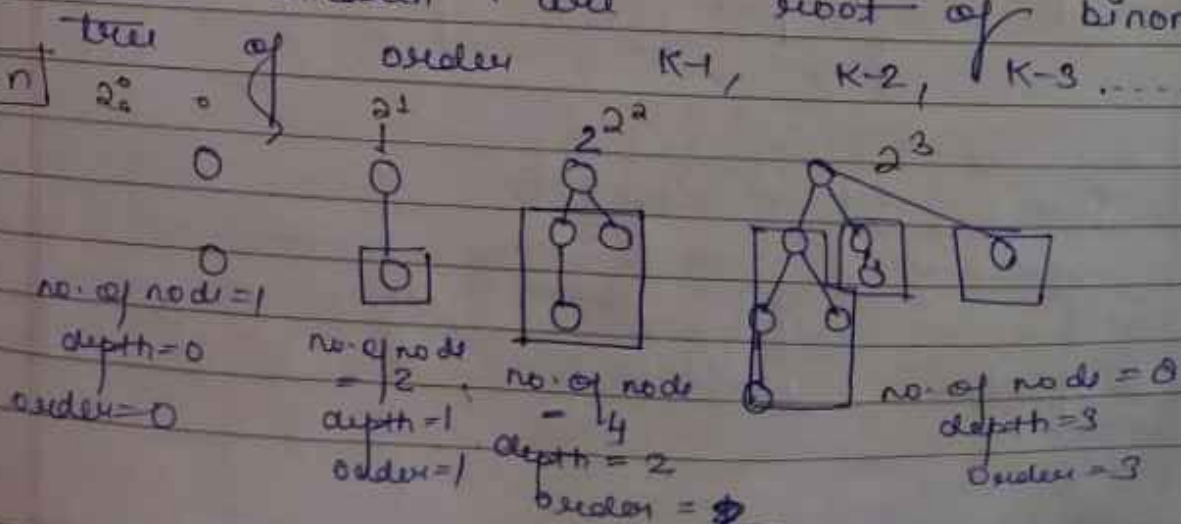 root of binom
tree of order K-1, K-2, K-3 .....
n
2⁰ 2¹ 2² 2³
no. of node=1
depth=0
order=0
no. of node
= 2
depth=1
order=1
no. of node
- 4
depth = 2
order =
no. of node = 8
depth=3
order = 3